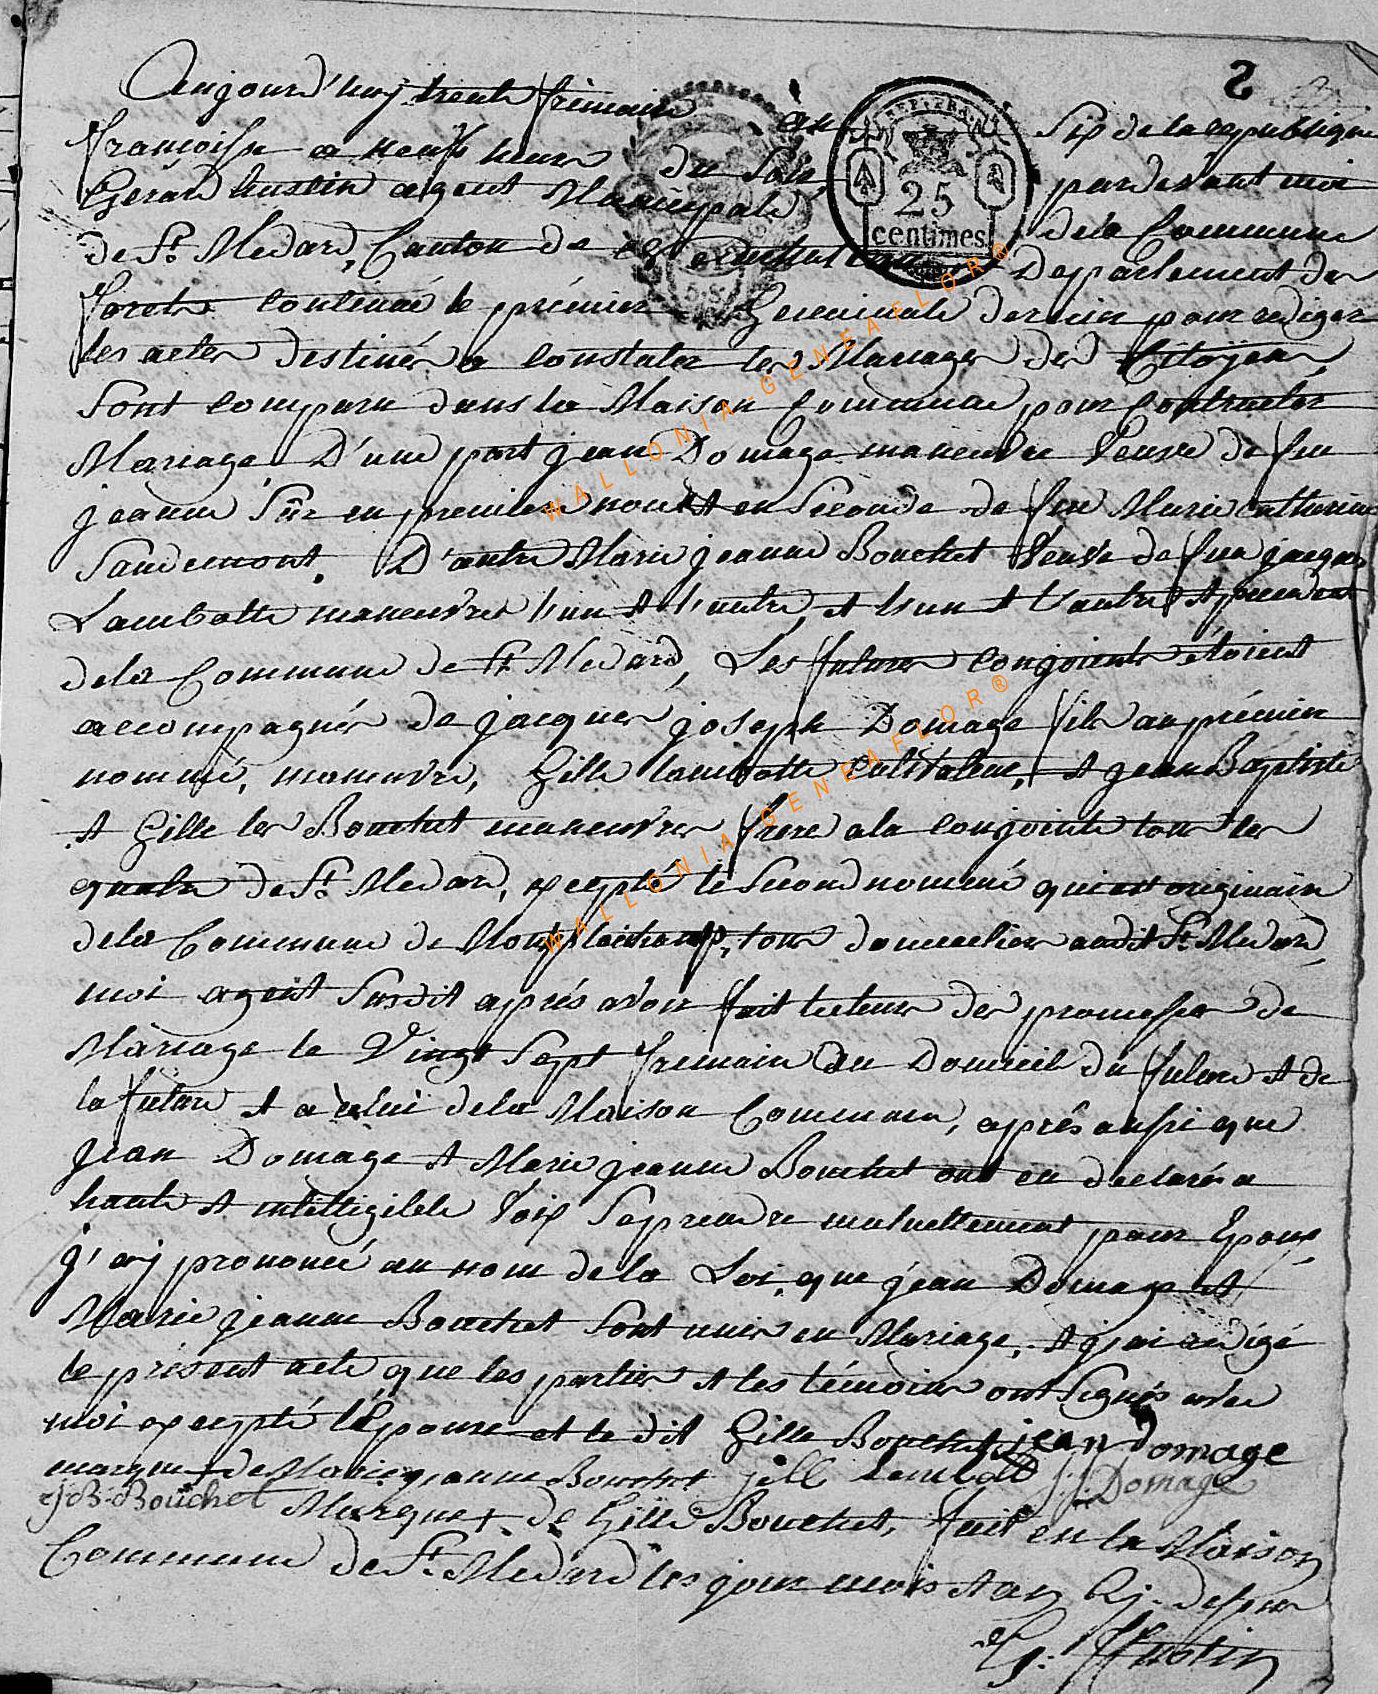 2
REP. FRA.
25
centimes
Aujourd'huy trente frimaire an Six de la republique
françoisse a neufs heures du Soir, pardevant moi
Gerard hustin agent Municipale de la Commune
de St. Medard, Canton de Departement des
forets continué le prémier Germinale dernier pour rediger
les actes destinés a constater les Mariages des Citoyens
Sont comparu dans la Maison Commune pour contracter
Mariage D'une part jean Domage maneuvre Veuve de feu
jeanne en premiere noce et en Seconde de feu Marie catherine
D'autre Marie jeanne Bouchet Veuve de feu jacques
Lambotte maneuvres l'un et l'autre, et l'un et l'autre
de la Commune de St. Medard, Les futures conjoints étoient
accompagnés de jacques joseph Domage fils au prémier
nommé, maneuvre, Gille lambotte cultivateur, et jean Baptiste
et Gille les Bouchet maneuvres frere a la conjointe tous les
quatre de St. Medard, excepté le Second nommé qui est originaire
de la Commune de tous domicilier audit St. Medard,
moi agent Susdit aprés avoir fait lecteure des promesses de
Mariage le Vingt Sept frimaire au Domicil du future et de
la future et a celui de la Maison Commune, aprés aussi que
jean Domage et Marie jeanne Bouchet ont eu declarés a
haute et intelligible Voix Se prendre mutuellement pour Epoux
j'ay prononcé au nom de la Loi, que jean Domage et
Marie jeanne Bouchet Sont unis en Mariage, et j'ai redigé
le présent acte que les parties et les témoins ont Signés avec
moi excepté l'Epouse et le dit Gille Bouchet jean domage
marque + de Marie jeanne Bouchet jille lambot j:j: Domage
j:B: Bouchet Marque + de Gille Bouchet, fait en la Maison
Commune de St. Medard les jour mois et an
G: Hustin
WALLONIA-GENEAFLOR®
WALLONIA-GENEAFLOR®